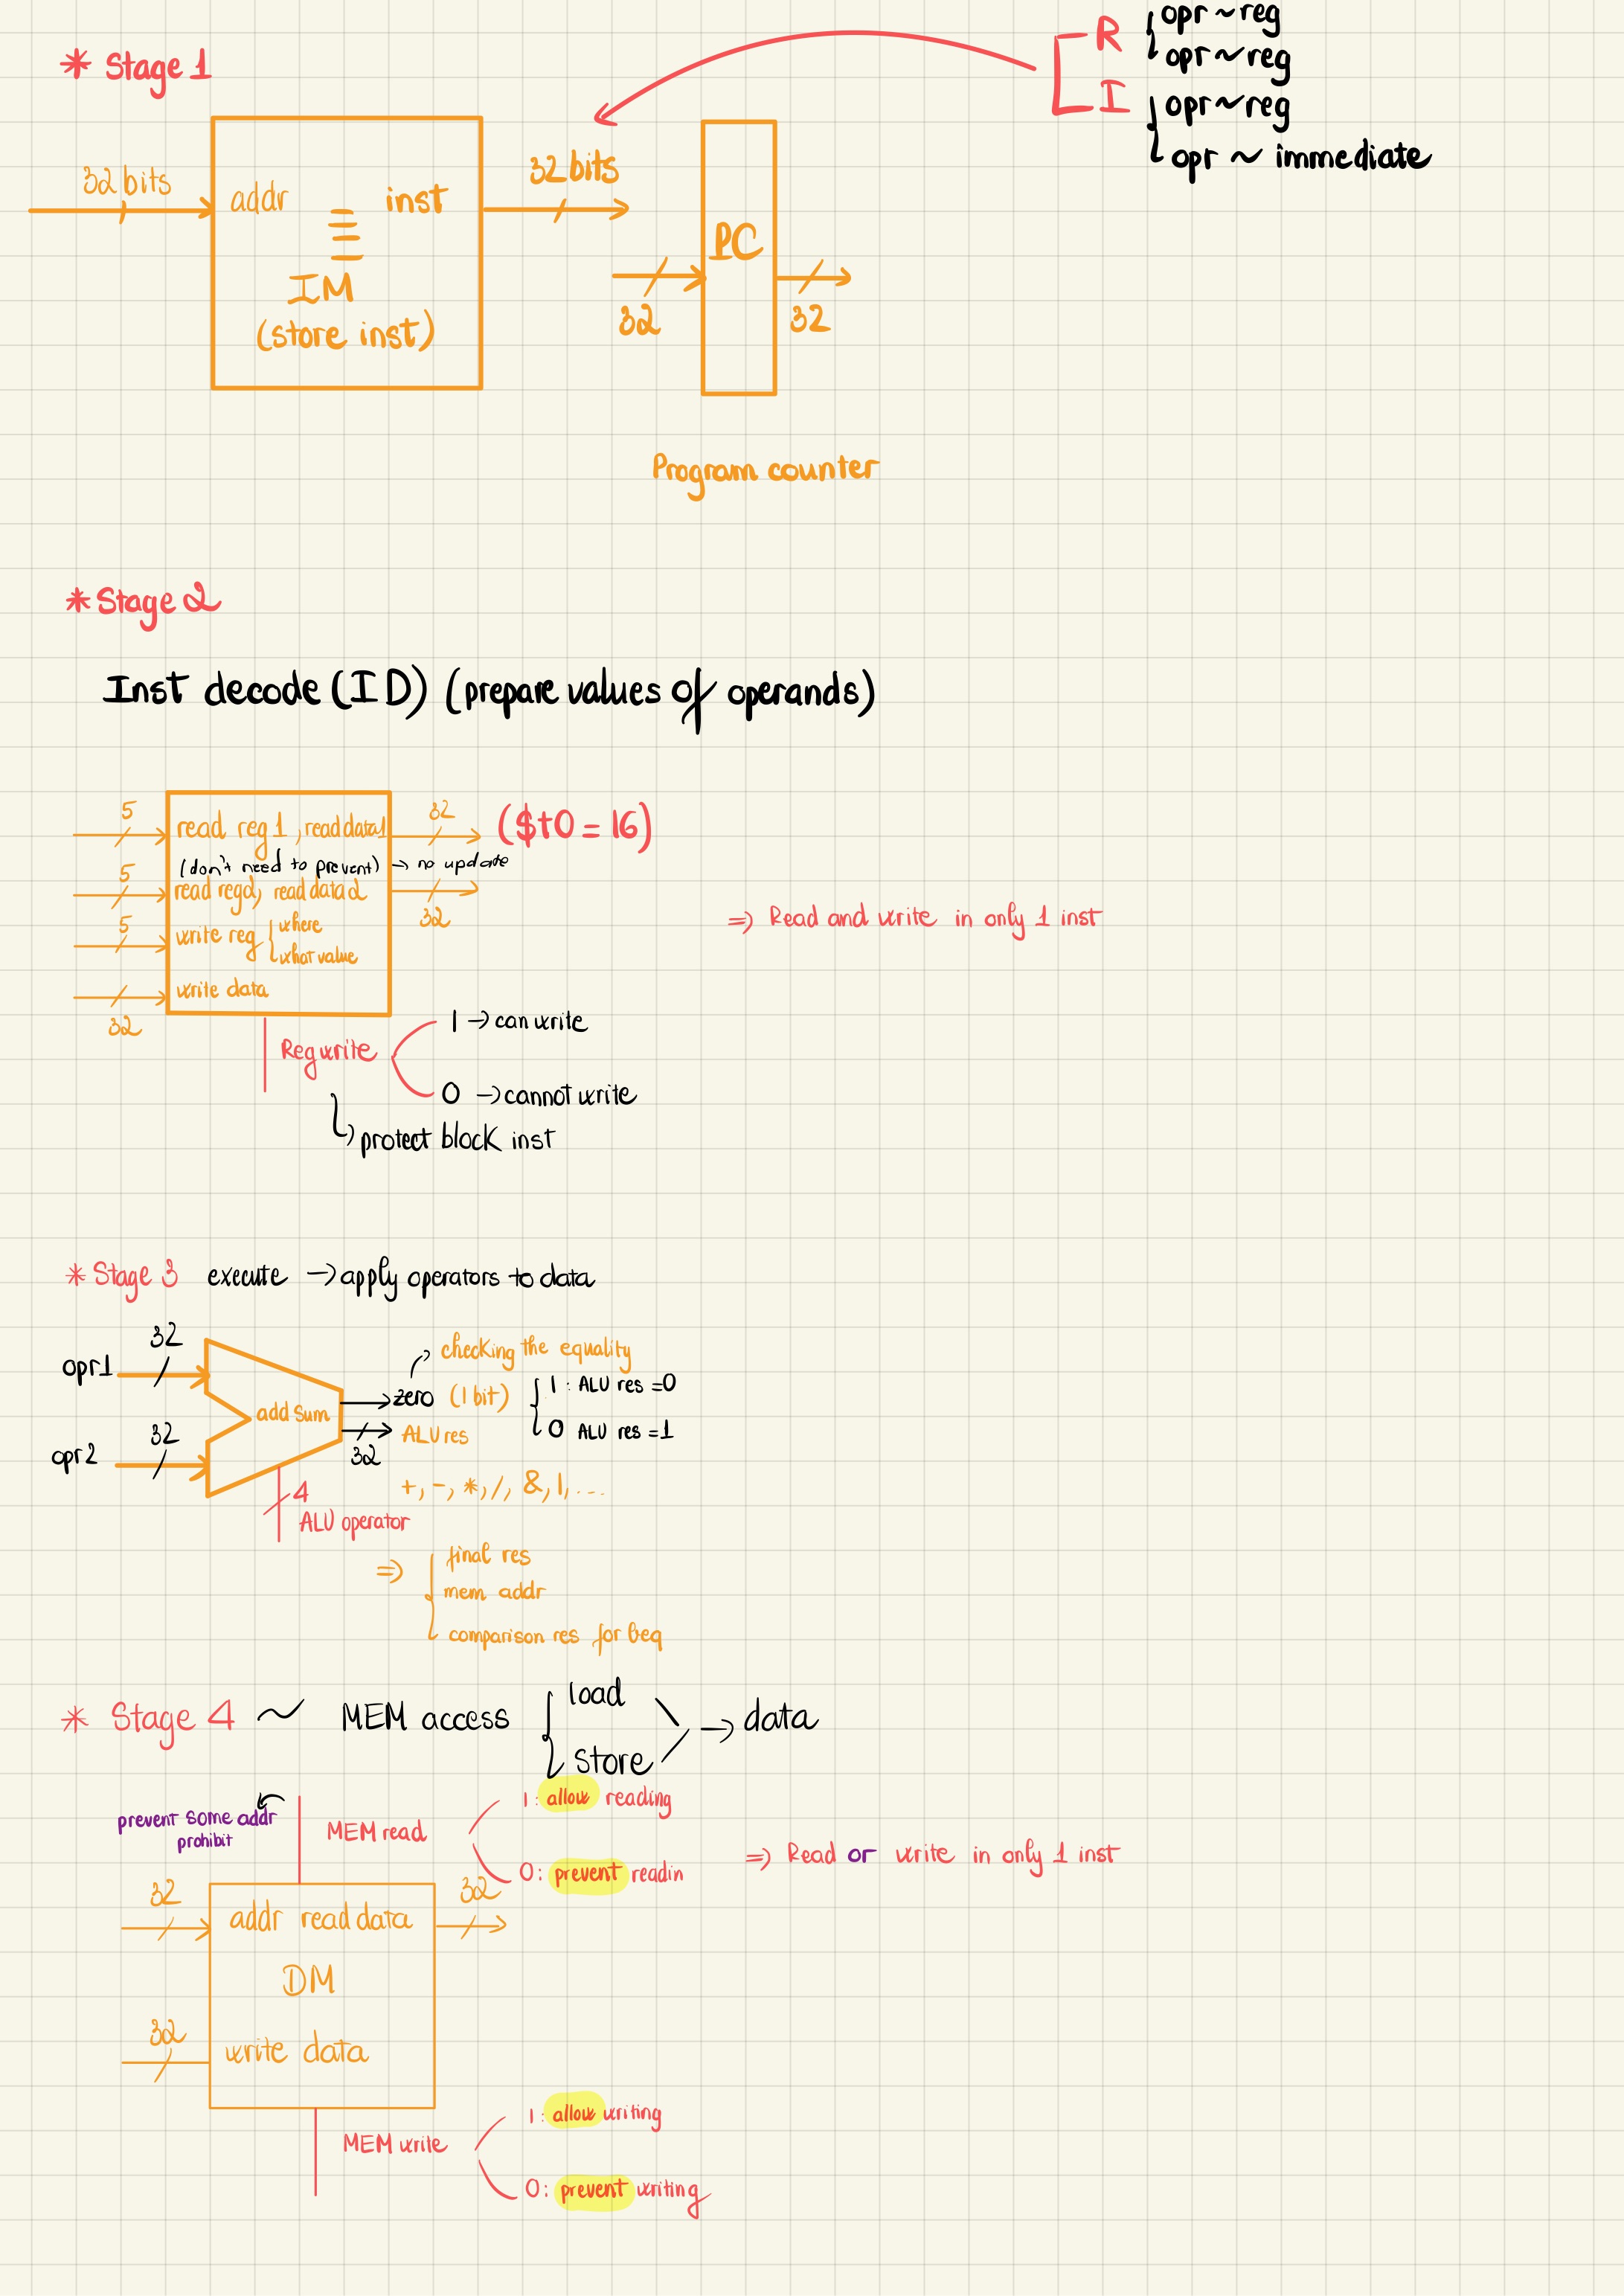 * Stage 1
R
opr ~ reg
opr ~ reg
I
opr ~ reg
opr ~ immediate
32 bits
addr
inst
IM
(store inst)
32 bits
PC
32
32
Program counter
* Stage 2
Inst decode (ID) (prepare values of operands)
5
read reg 1, read data1
32
($t0 = 16)
(don't need to prevent) → no update
5
read reg2, read data2
32
5
write reg
where
what value
write data
32
⇒ Read and write in only 1 inst
Reg write
1 → can write
0 → cannot write
protect block inst
* Stage 3 execute → apply operators to data
opr1
32
opr2
32
add sum
checking the equality
zero (1 bit)
1 : ALU res = 0
0 ALU res = 1
ALU res
32
+, -, *, /, &, |, ...
4
ALU operator
⇒
final res
mem addr
comparison res for beq
* Stage 4 ~ MEM access
load
store
→ data
prevent some addr
prohibit
MEM read
1: allow reading
0: prevent readin
⇒ Read or write in only 1 inst
32
addr read data
32
DM
32
write data
MEM write
1: allow writing
0: prevent writing